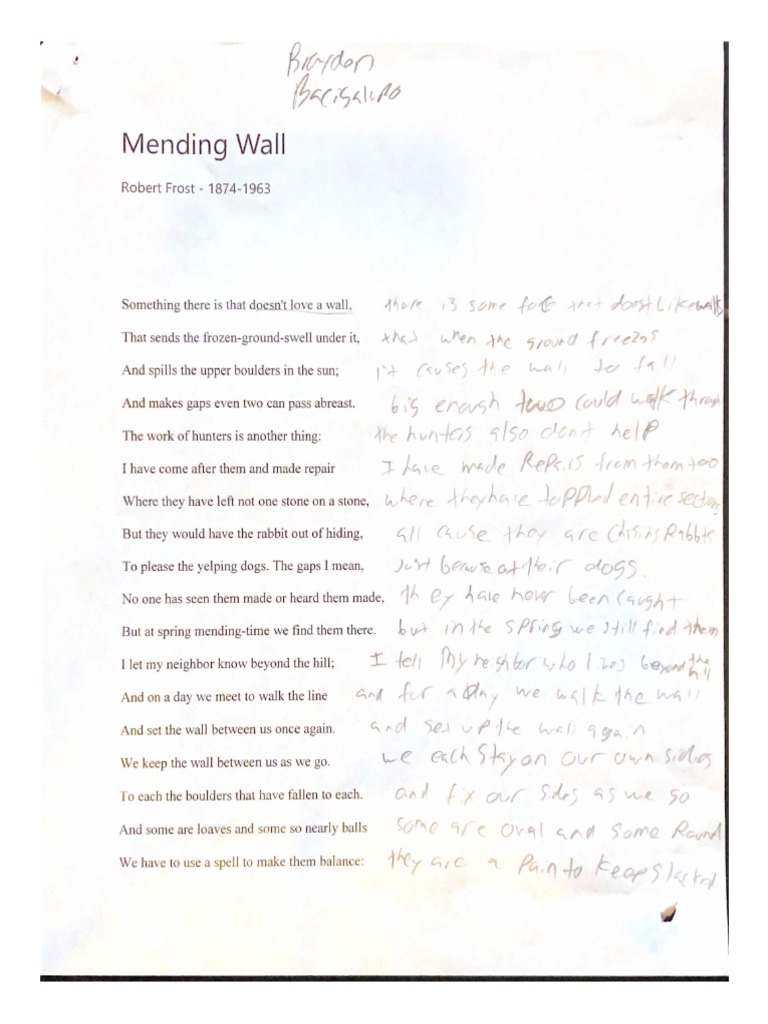 Braydon
Bacigalupo
Mending Wall
Robert Frost - 1874-1963
Something there is that doesn't love a wall, there is some force that doest Like walls
That sends the frozen-ground-swell under it, that when the ground freezes
And spills the upper boulders in the sun; it causes the wall to fall
And makes gaps even two can pass abreast. big enough two could walk through
The work of hunters is another thing: the hunters also dont help
I have come after them and made repair I have made Repairs from them too
Where they have left not one stone on a stone, where they have toppled entire sections
But they would have the rabbit out of hiding, all cause they are Chasing Rabbits
To please the yelping dogs. The gaps I mean, Just because of their dogs.
No one has seen them made or heard them made, they have never been Caught
But at spring mending-time we find them there. but in the spring we still find them
I let my neighbor know beyond the hill; I tell My neighbor who lives beyond the hill
And on a day we meet to walk the line and for a day we walk the wall
And set the wall between us once again. and set up the wall again
We keep the wall between us as we go. we each stay on our own sides
To each the boulders that have fallen to each. and fix our sides as we go
And some are loaves and some so nearly balls some are oval and some Round
We have to use a spell to make them balance: they are a Pain to keep stacked